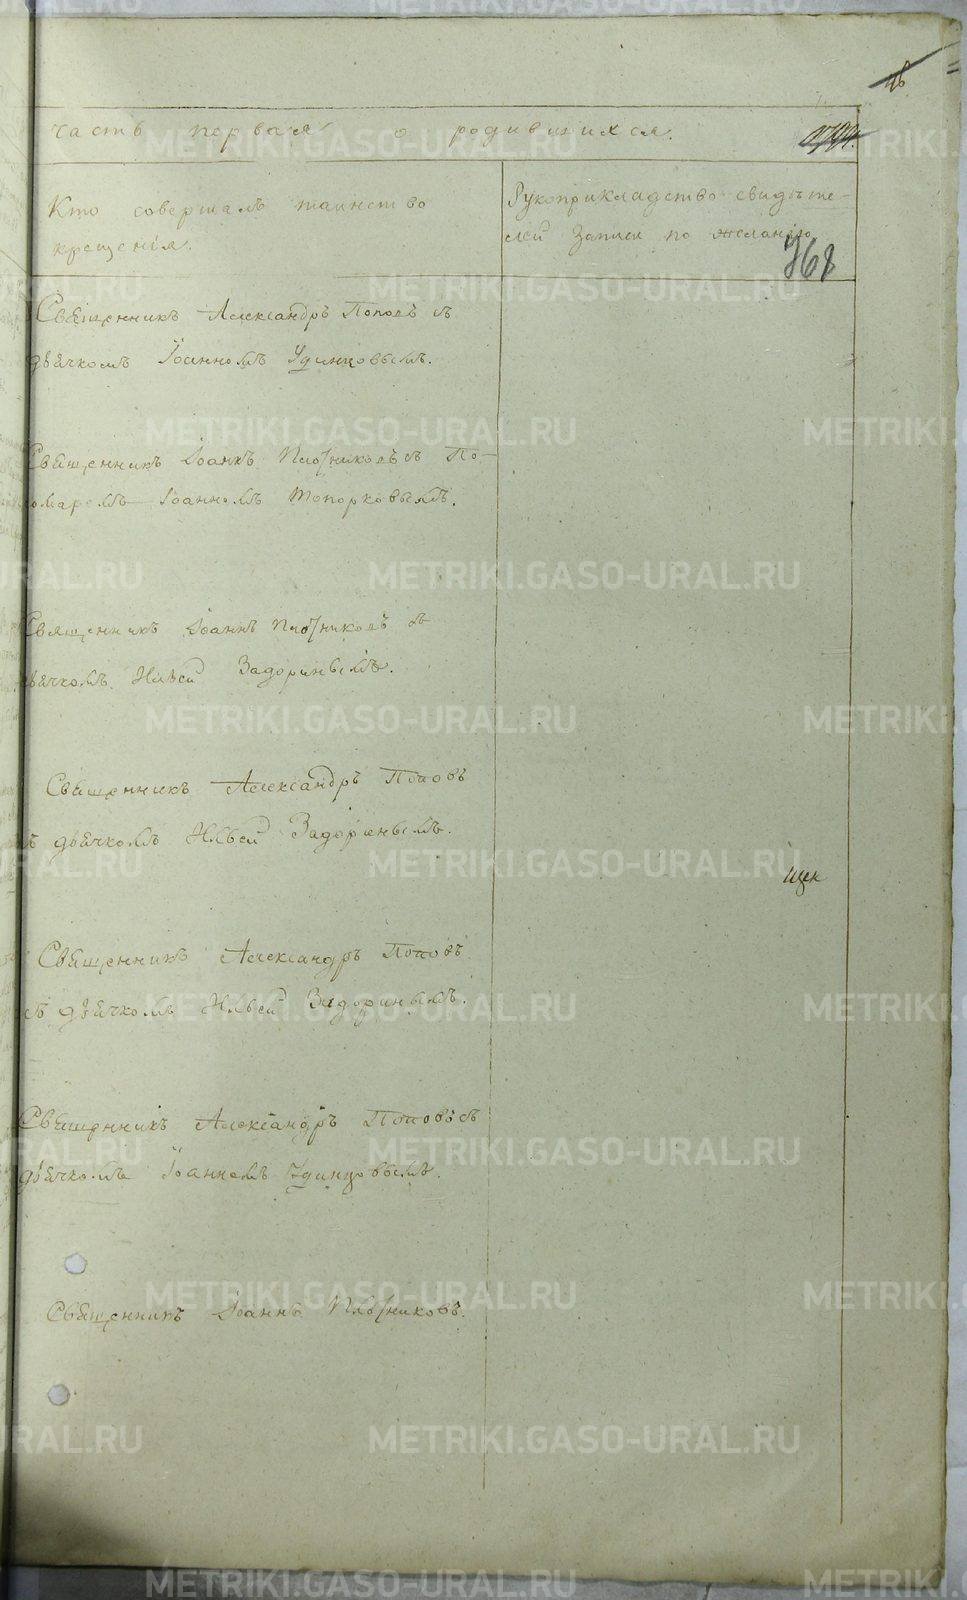 46
часть первая о родившихся.
Кто совершалъ таинство
крещенія.
Рукоприкладство свидѣте-
лей записи по желанію
768
Священникъ Александръ Поповъ съ
дьячкомъ Іоанномъ Удинцовымъ.
Священникъ Іоаннъ Плотниковъ съ По-
номаремъ Іоанномъ Топорковымъ.
Священникъ Іоаннъ Плотниковъ съ
дьячкомъ Ильей Задоринымъ.
Священникъ Александръ Поповъ
съ дьячкомъ Ильей Задоринымъ.
Священникъ Александръ Поповъ
съ дьячкомъ Ильей Задоринымъ.
Священникъ Александръ Поповъ съ
дьячкомъ Іоанномъ Удинцовымъ.
Священникъ Іоаннъ Плотниковъ.
METRIKI.GASO-URAL.RU